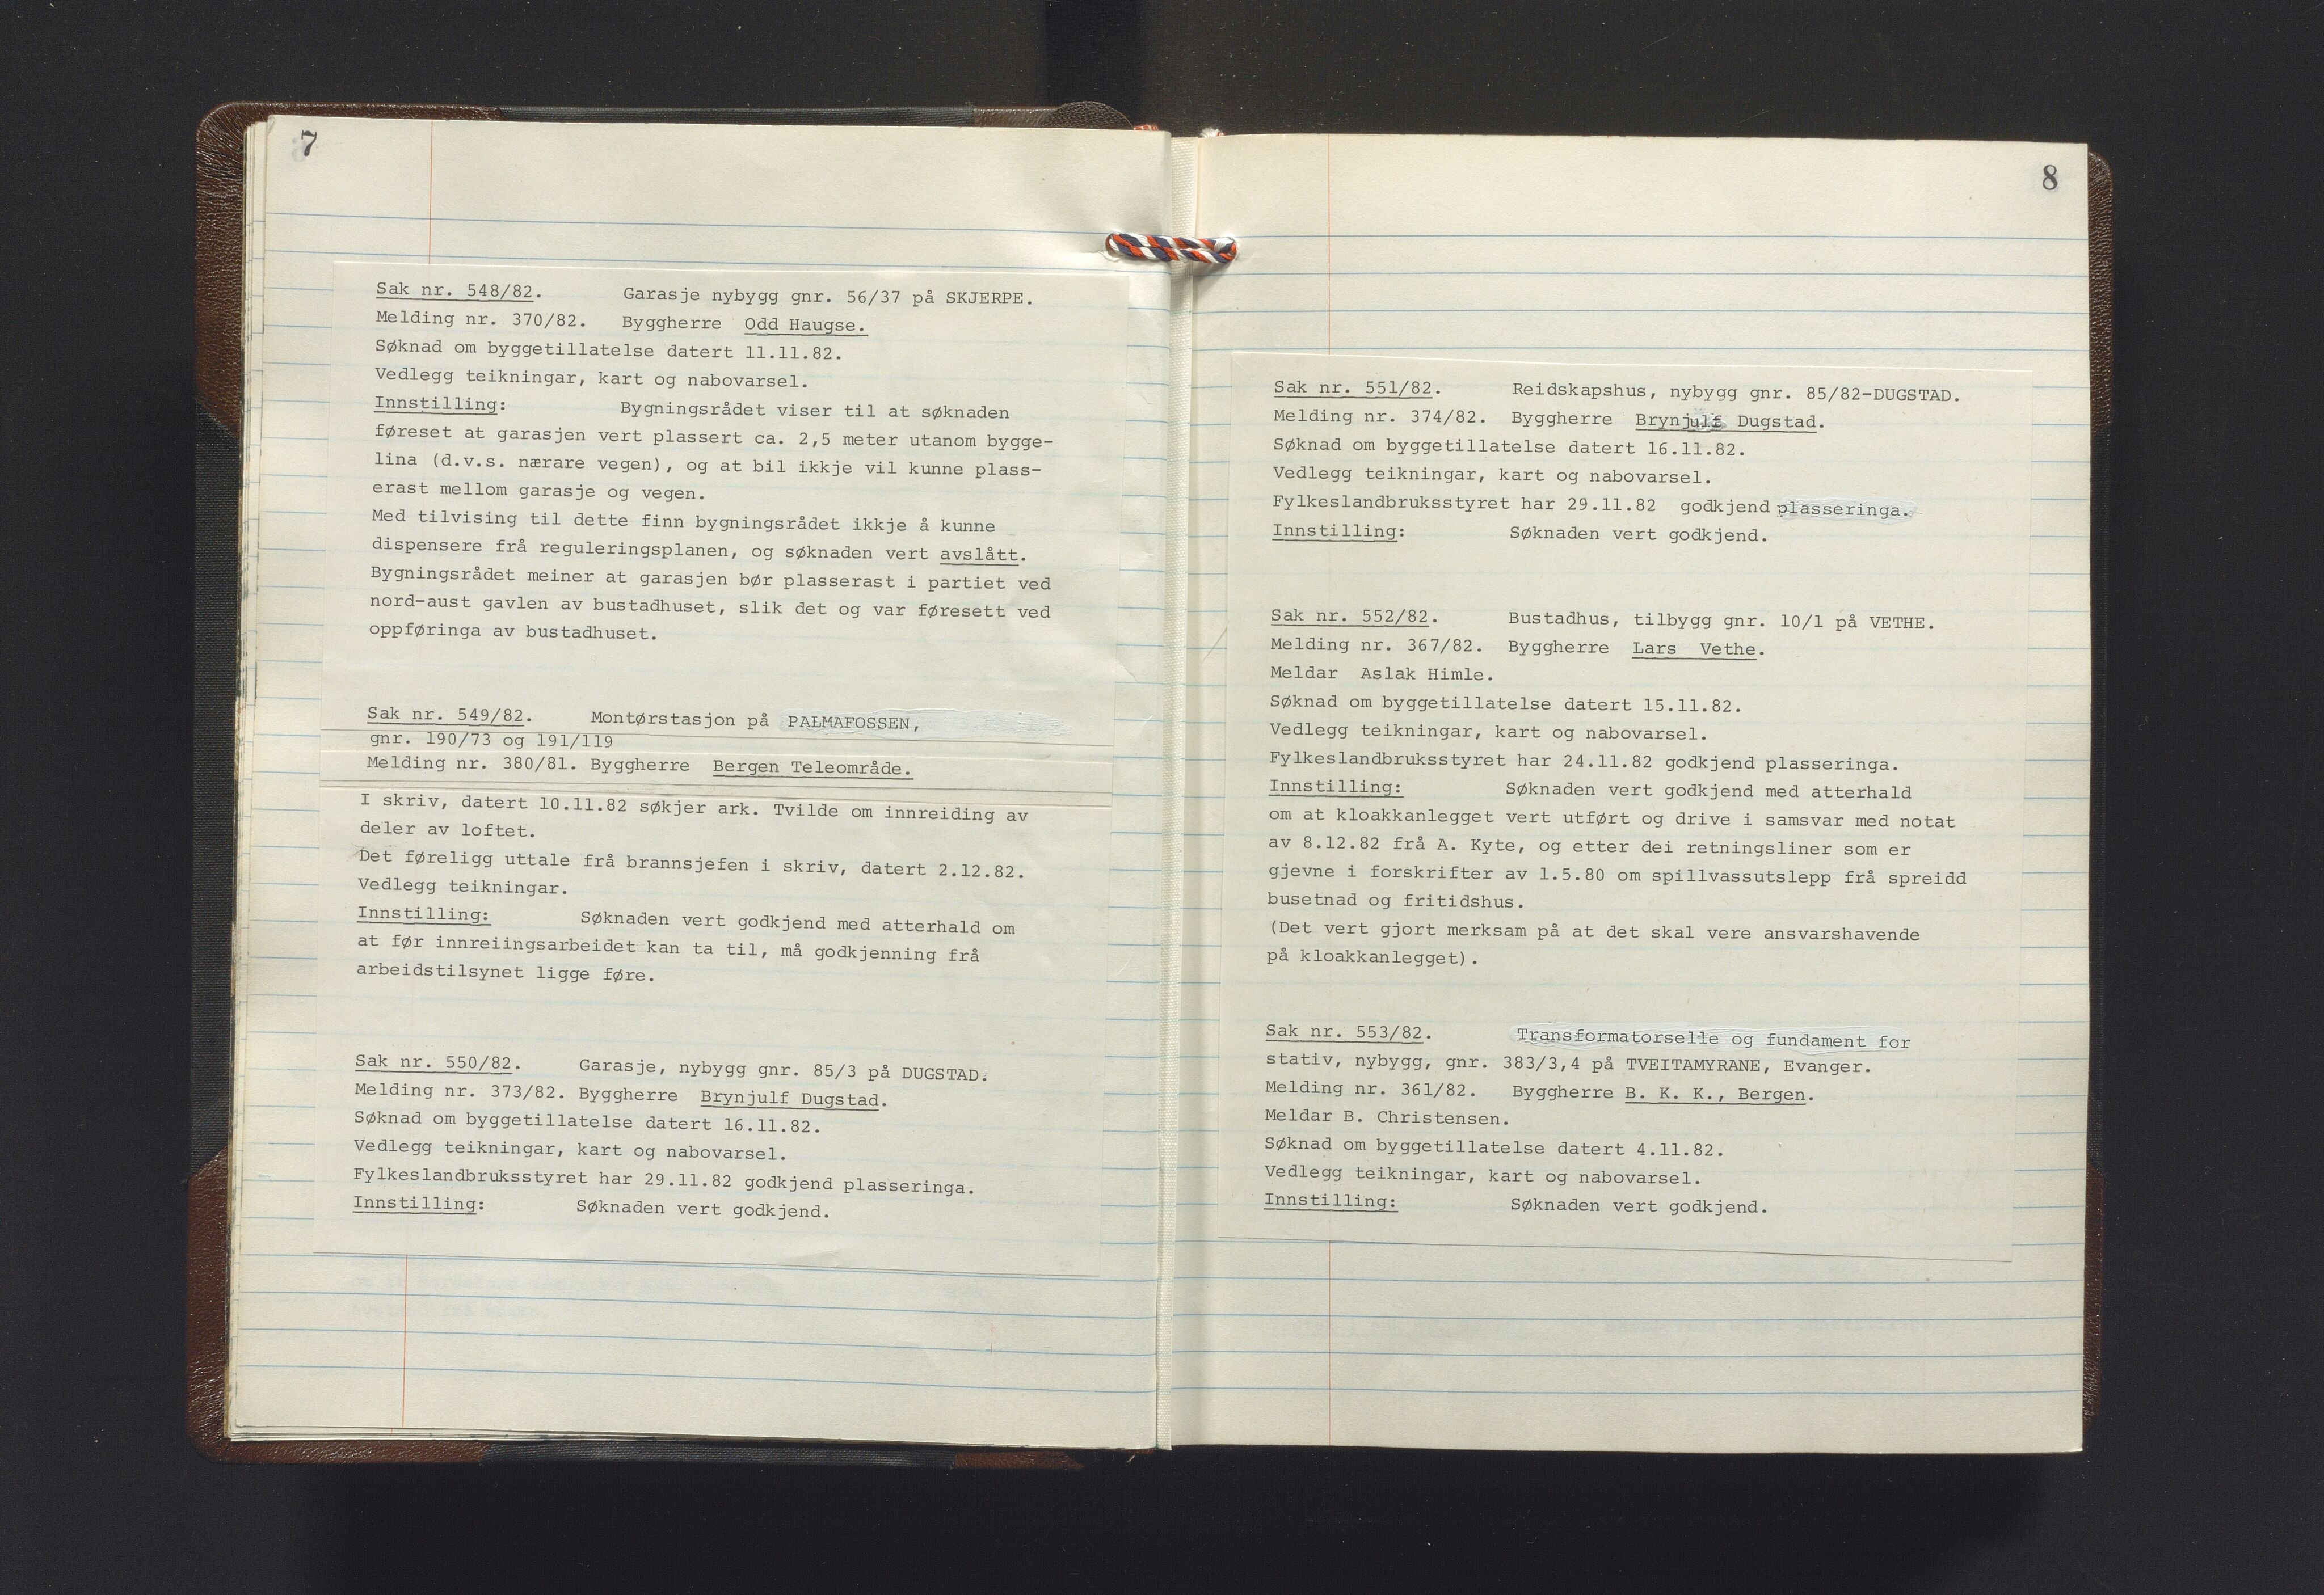 7
Sak nr. 548/82. Garasje nybygg gnr. 56/37 på SKJERPE.
Melding nr. 370/82. Byggherre Odd Haugse.
Søknad om byggetillatelse datert 11.11.82.
Vedlegg teikningar, kart og nabovarsel.
Innstilling: Bygningsrådet viser til at søknaden
føreset at garasjen vert plassert ca. 2,5 meter utanom bygge-
lina (d.v.s. nærare vegen), og at bil ikkje vil kunne plass-
erast mellom garasje og vegen.
Med tilvising til dette finn bygningsrådet ikkje å kunne
dispensere frå reguleringsplanen, og søknaden vert avslått.
Bygningsrådet meiner at garasjen bør plasserast i partiet ved
nord-aust gavlen av bustadhuset, slik det og var føresett ved
oppføringa av bustadhuset.
Sak nr. 549/82. Montørstasjon på PALMAFOSSEN,
gnr. 190/73 og 191/119
Melding nr. 380/81. Byggherre Bergen Teleområde.
I skriv, datert 10.11.82 søkjer ark. Tvilde om innreiding av
deler av loftet.
Det føreligg uttale frå brannsjefen i skriv, datert 2.12.82.
Vedlegg teikningar.
Innstilling: Søknaden vert godkjend med atterhald om
at før innreiingsarbeidet kan ta til, må godkjenning frå
arbeidstilsynet ligge føre.
Sak nr. 550/82. Garasje, nybygg gnr. 85/3 på DUGSTAD.
Melding nr. 373/82. Byggherre Brynjulf Dugstad.
Søknad om byggetillatelse datert 16.11.82.
Vedlegg teikningar, kart og nabovarsel.
Fylkeslandbruksstyret har 29.11.82 godkjend plasseringa.
Innstilling: Søknaden vert godkjend.
8
Sak nr. 551/82. Reidskapshus, nybygg gnr. 85/82-DUGSTAD.
Melding nr. 374/82. Byggherre Brynjulf Dugstad.
Søknad om byggetillatelse datert 16.11.82.
Vedlegg teikningar, kart og nabovarsel.
Fylkeslandbruksstyret har 29.11.82 godkjend plasseringa.
Innstilling: Søknaden vert godkjend.
Sak nr. 552/82. Bustadhus, tilbygg gnr. 10/1 på VETHE.
Melding nr. 367/82. Byggherre Lars Vethe.
Meldar Aslak Himle.
Søknad om byggetillatelse datert 15.11.82.
Vedlegg teikningar, kart og nabovarsel.
Fylkeslandbruksstyret har 24.11.82 godkjend plasseringa.
Innstilling: Søknaden vert godkjend med atterhald
om at kloakkanlegget vert utført og drive i samsvar med notat
av 8.12.82 frå A. Kyte, og etter dei retningsliner som er
gjevne i forskrifter av 1.5.80 om spillvassutslepp frå spreidd
busetnad og fritidshus.
(Det vert gjort merksam på at det skal vere ansvarshavende
på kloakkanlegget).
Sak nr. 553/82. Transformatorselle og fundament for
stativ, nybygg, gnr. 383/3,4 på TVEITAMYRANE, Evanger.
Melding nr. 361/82. Byggherre B. K. K., Bergen.
Meldar B. Christensen.
Søknad om byggetillatelse datert 4.11.82.
Vedlegg teikningar, kart og nabovarsel.
Innstilling: Søknaden vert godkjend.